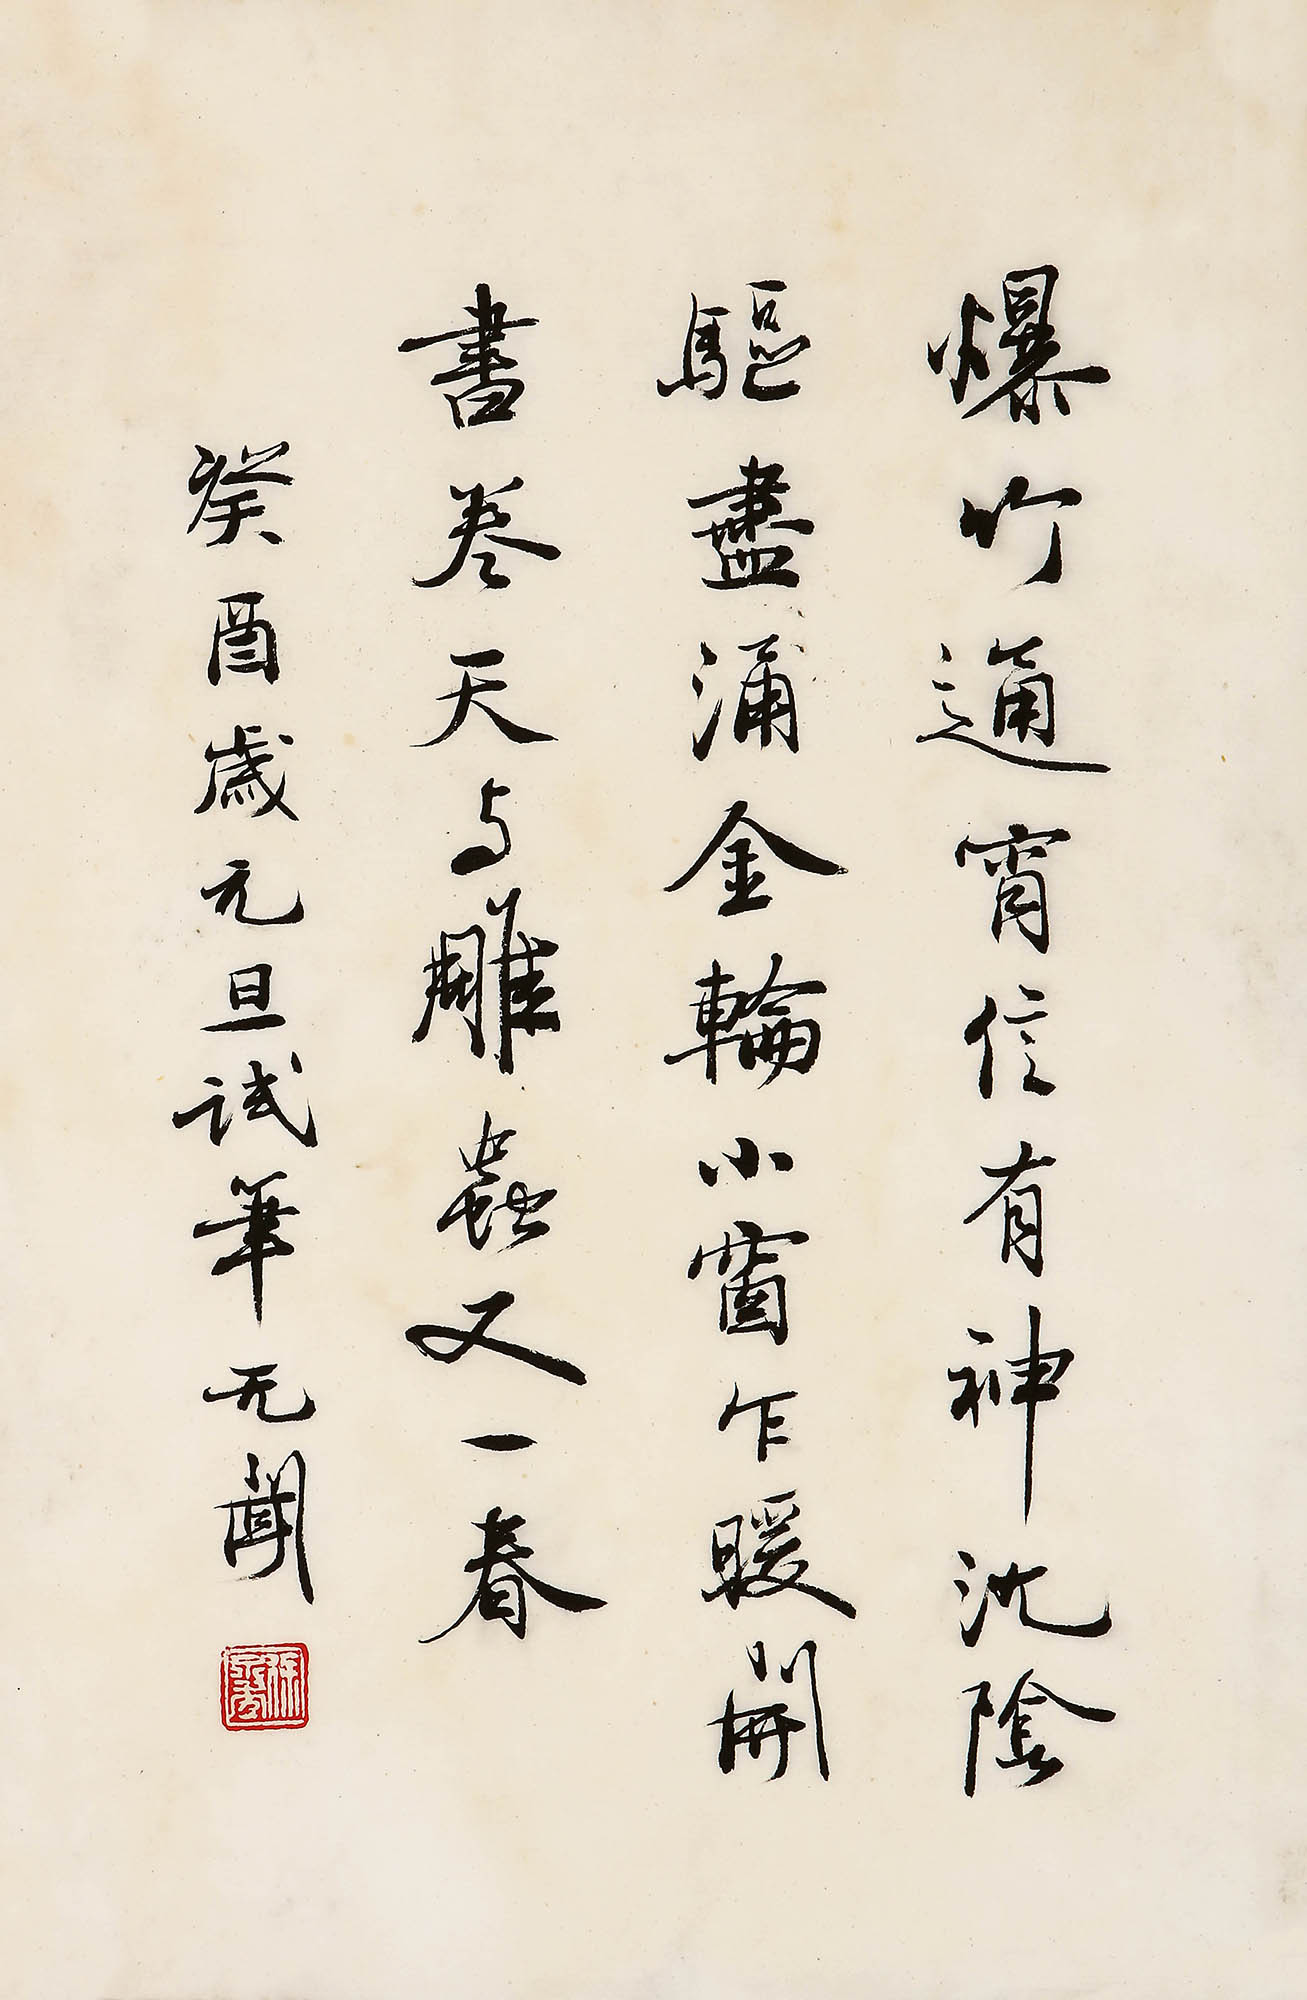 爆竹通宵信有神沈陰
驅盡涌金輪小窗乍暖開
書卷天与雕蟲又一春
癸酉歲元旦試筆无聞
徐无聞